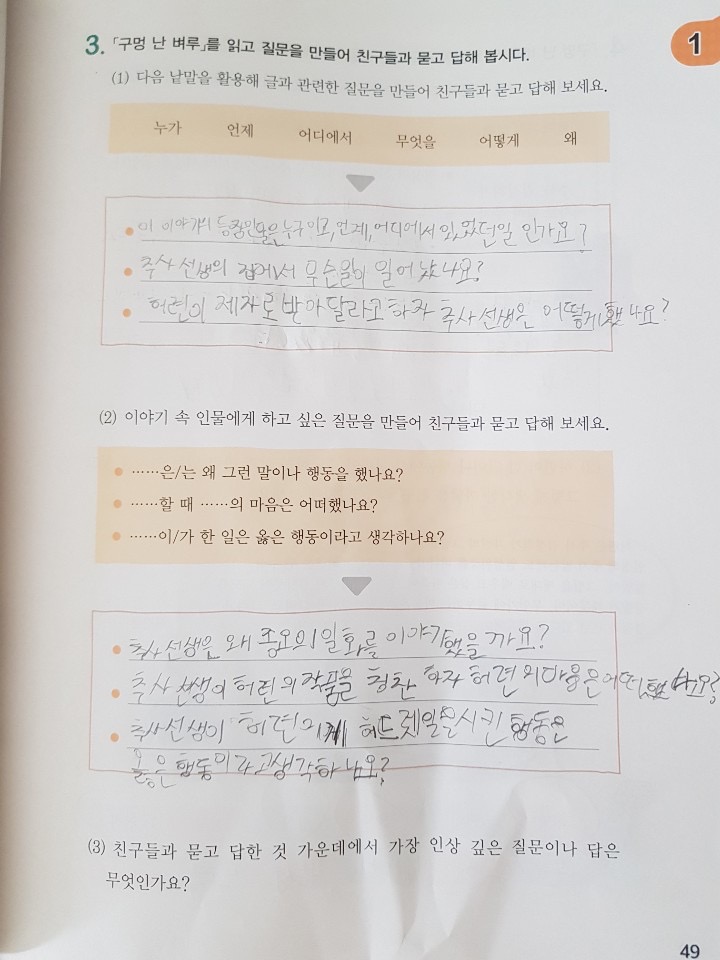 3. 「구멍 난 벼루」를 읽고 질문을 만들어 친구들과 묻고 답해 봅시다.
1
(1) 다음 낱말을 활용해 글과 관련한 질문을 만들어 친구들과 묻고 답해 보세요.
누가 언제 어디에서 무엇을 어떻게 왜
이 이야기의 등장인물은 누구이고, 언제, 어디에서 있었던일 인가요?
추사 선생의 집에서 무슨일이 일어 났나요?
허련이 제자로 받아 달라고 하자 추사 선생은 어떻게 했나요?
(2) 이야기 속 인물에게 하고 싶은 질문을 만들어 친구들과 묻고 답해 보세요.
……은/는 왜 그런 말이나 행동을 했나요?
……할 때 ……의 마음은 어떠했나요?
……이/가 한 일은 옳은 행동이라고 생각하나요?
추사 선생은 왜 종요의 일화를 이야기했을 까요?
추사 선생이 허련의 작품을 칭찬 하자 허련의 마음은 어떠했 나요?
추사 선생이 허련에게 허드렛일을 시킨 행동은
옳은 행동이라고 생각하나요?
(3) 친구들과 묻고 답한 것 가운데에서 가장 인상 깊은 질문이나 답은
무엇인가요?
49